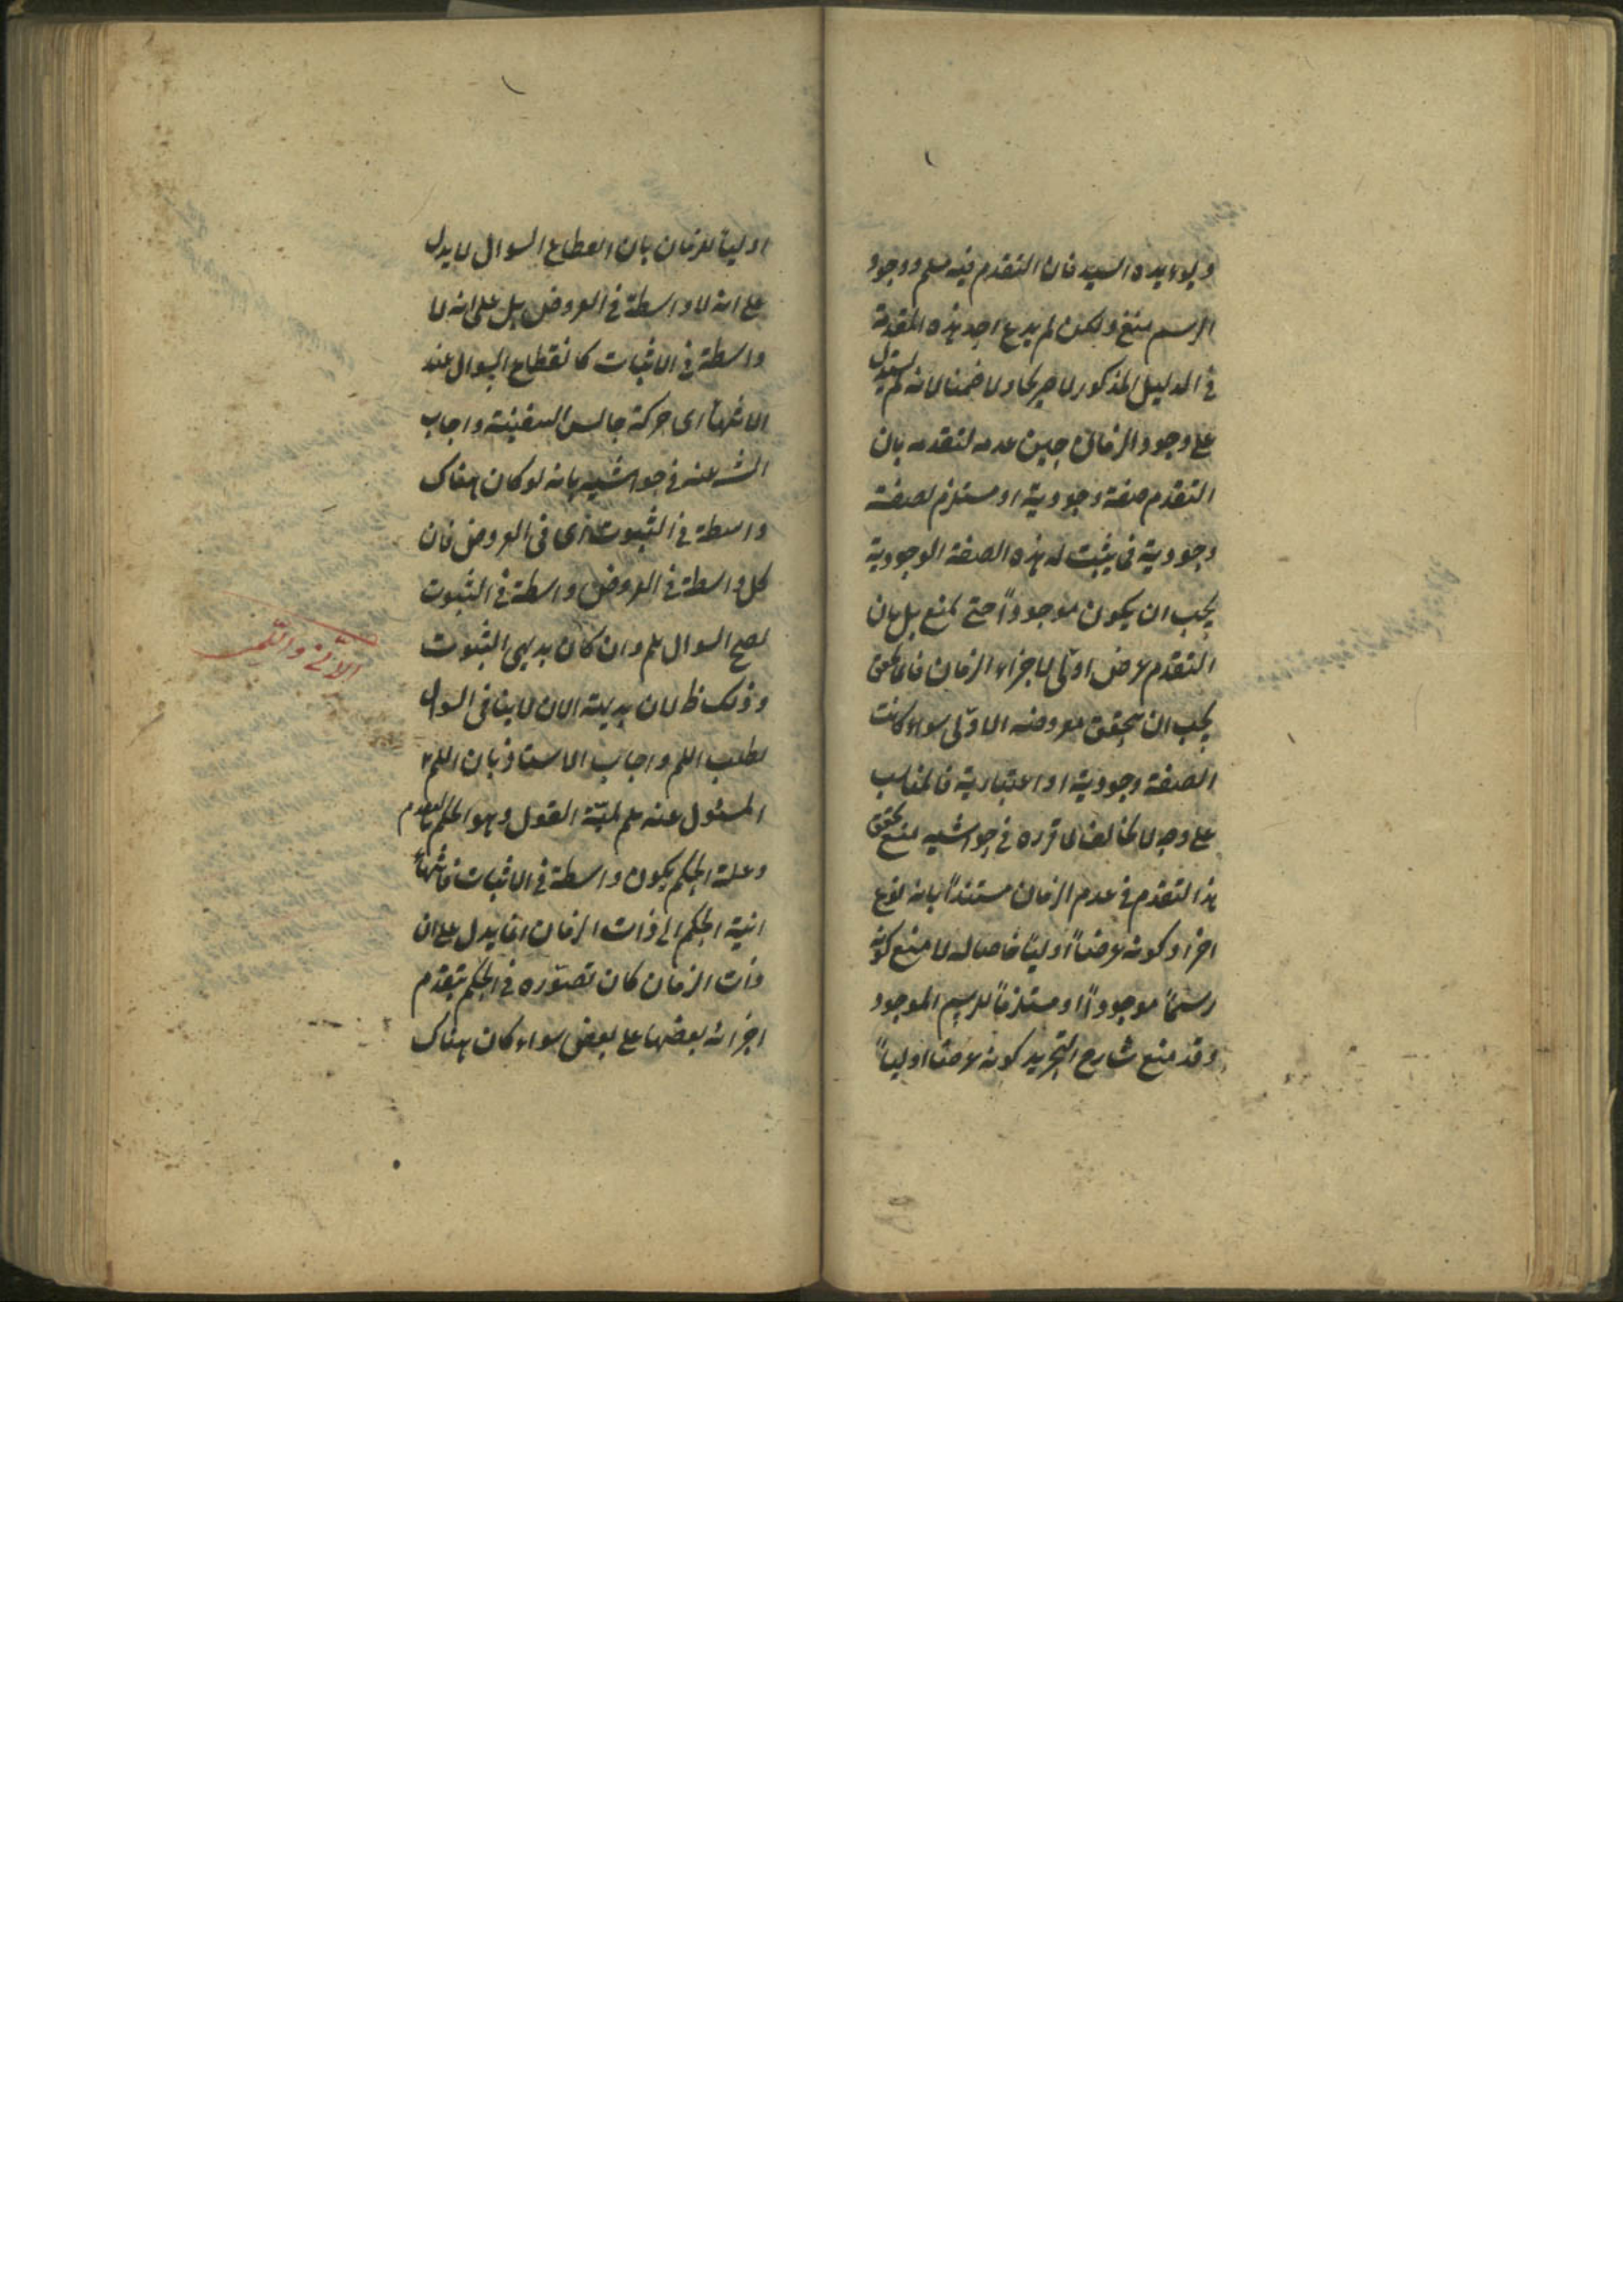 ويؤيده السيد فان التقدم فيه مسلم ووجود
الرسم منع ولكن لم يدع احد هذه المقدمة
في الدليل المذكور لا صريحا ولا ضمنا لانه لم يستدل
على وجود الزمان حين عدمه لتقدمه بان
التقدم صفة وجودية او مستلزم لصفة
وجودية فما يثبت له هذه الصفة الوجودية
يجب ان يكون موجوداً حتى يمنع بل بان
التقدم عرض اوّلى لاجزاء الزمان فاذا تحقق
يجب ان يتحقق معروضه الاوّلى سواء كانت
الصفة وجودية او اعتبارية فالمناسب
على وجه لا يخالف ما قرره في حواشيه منع تحقق
هذا التقدم في عدم الزمان مستنداً بانه نوع
اخر او كونه عرضاً اولياً خاصا له لا منع كونه
رسماً موجوداً او مستلزماً للرسم الموجود
وقد منع شارح التجريد كونه عرضا اولياً
اوليا للزمان بان انقطاع السوال لا يدل
على انه لا واسطة في العروض بل على انه لا
واسطة في الاثبات كانقطاع السوال عند
الانتهاء الى حركة جالس السفينة واجاب
الشـ عنه في حواشيه بانه لو كان هناك
واسطة في الثبوت في العروض فان
كل واسطة في العروض واسطة في الثبوت
لصح السوال بلم وان كان بديهى الثبوت
وذلك ظ لان بديهة الان لا ينافى السوال
لطلب اللم واجاب الاستاذ بان اللم
المسئول عنه بلم لميّة القول وهو الحكم بالتقدم
وعلة الحكم يكون واسطة في الاثبات فانتهاء
انية الحكم الى ذات الزمان انما يدل على ان
ذات الزمان كان تصوّره في الحكم بتقدم
اجزائه بعضها على بعض سواء كان هناك